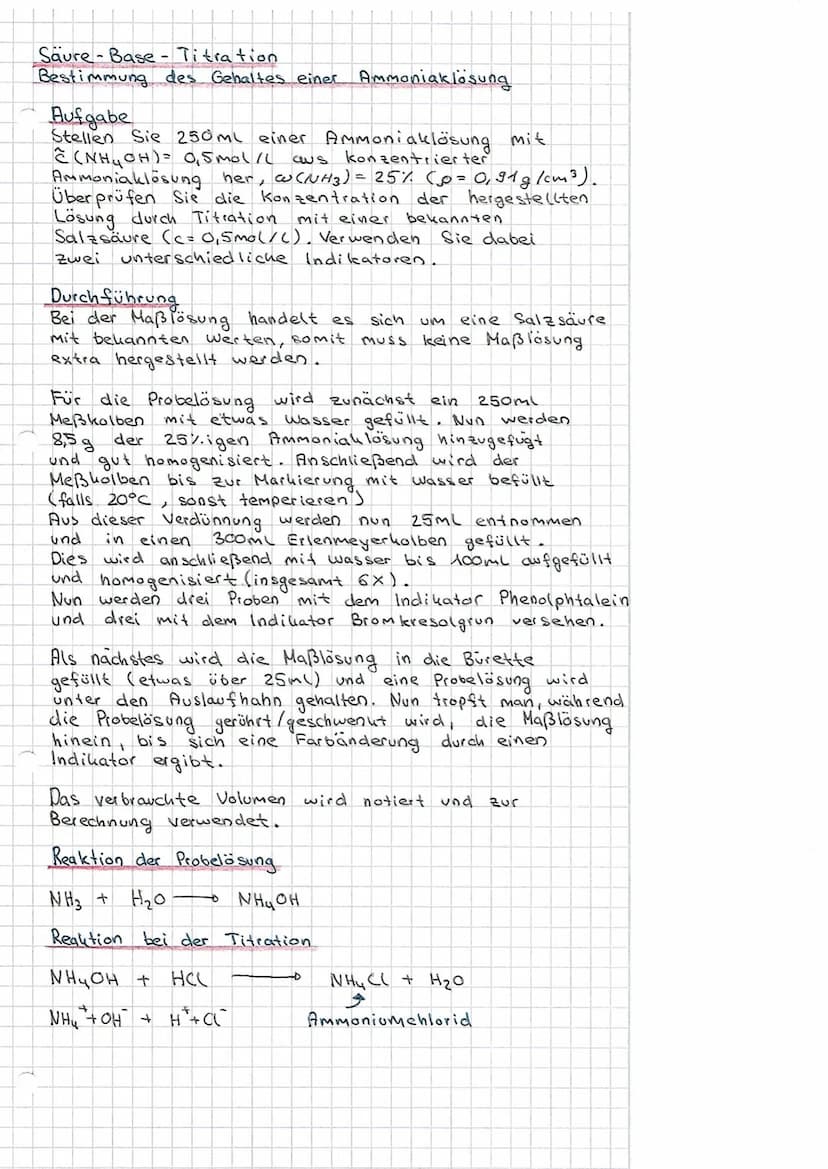 Säure-Base-Titration
Bestimmung des Gehaltes einer Ammoniaklösung
Aufgabe
Stellen Sie 250mL einer Ammoniaklösung mit
c̃(NH₄OH)= 0,5mol/L aus konzentrierter
Ammoniaklösung her, ω(NH₃)= 25% (ρ= 0,91g/cm³).
Überprüfen Sie die Konzentration der hergestellten
Lösung durch Titration mit einer bekannten
Salzsäure (c= 0,5mol/L). Verwenden Sie dabei
zwei unterschiedliche Indikatoren.
Durchführung
Bei der Maßlösung handelt es sich um eine Salzsäure
mit bekannten Werten, somit muss keine Maßlösung
extra hergestellt werden.
Für die Probelösung wird zunächst ein 250mL
Meßkolben mit etwas Wasser gefüllt. Nun werden
8,5g der 25%igen Ammoniaklösung hinzugefügt
und gut homogenisiert. Anschließend wird der
Meßkolben bis zur Markierung mit Wasser befüllt
(falls 20°C, sonst temperieren)
Aus dieser Verdünnung werden nun 25mL entnommen
und in einen 300mL Erlenmeyerkolben gefüllt.
Dies wird anschließend mit Wasser bis 100mL aufgefüllt
und homogenisiert (insgesamt 6x).
Nun werden drei Proben mit dem Indikator Phenolphtalein
und drei mit dem Indikator Bromkresolgrun versehen.
Als nächstes wird die Maßlösung in die Bürette
gefüllt (etwas über 25mL) und eine Probelösung wird
unter den Auslaufhahn gehalten. Nun tropft man, während
die Probelösung gerührt/geschwenkt wird, die Maßlösung
hinein, bis sich eine Farbänderung durch einen
Indikator ergibt.
Das verbrauchte Volumen wird notiert und zur
Berechnung verwendet.
Reaktion der Probelösung
NH₃ + H₂O → NH₄OH
Reaktion bei der Titration
NH₄OH + HCl → NH₄Cl + H₂O
NH₄⁺+OH⁻ + H⁺+Cl⁻ Ammoniumchlorid